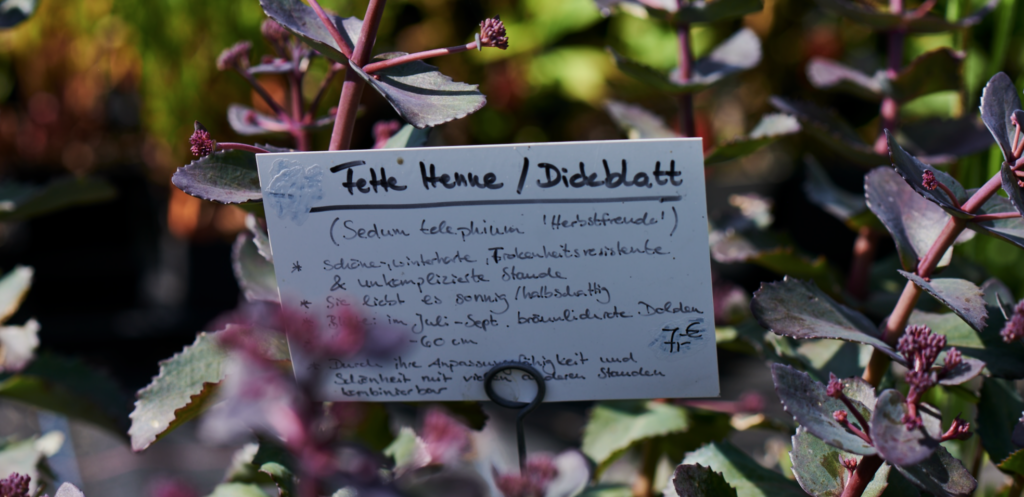 Fette Henne / Dickblatt
(Sedum telephium 'Herbstfreude')
* schöne, winterharte, Trokenheitsresistente.
& unkomplizierte Staude
* Sie liebt es sonnig/halbschattig
im Juli-Sept. bräunlichrote Dolden
-60 cm
7,-€
Durch ihre Anpassungsfähigkeit und
Schönheit mit vielen anderen Stauden
kombinierbar